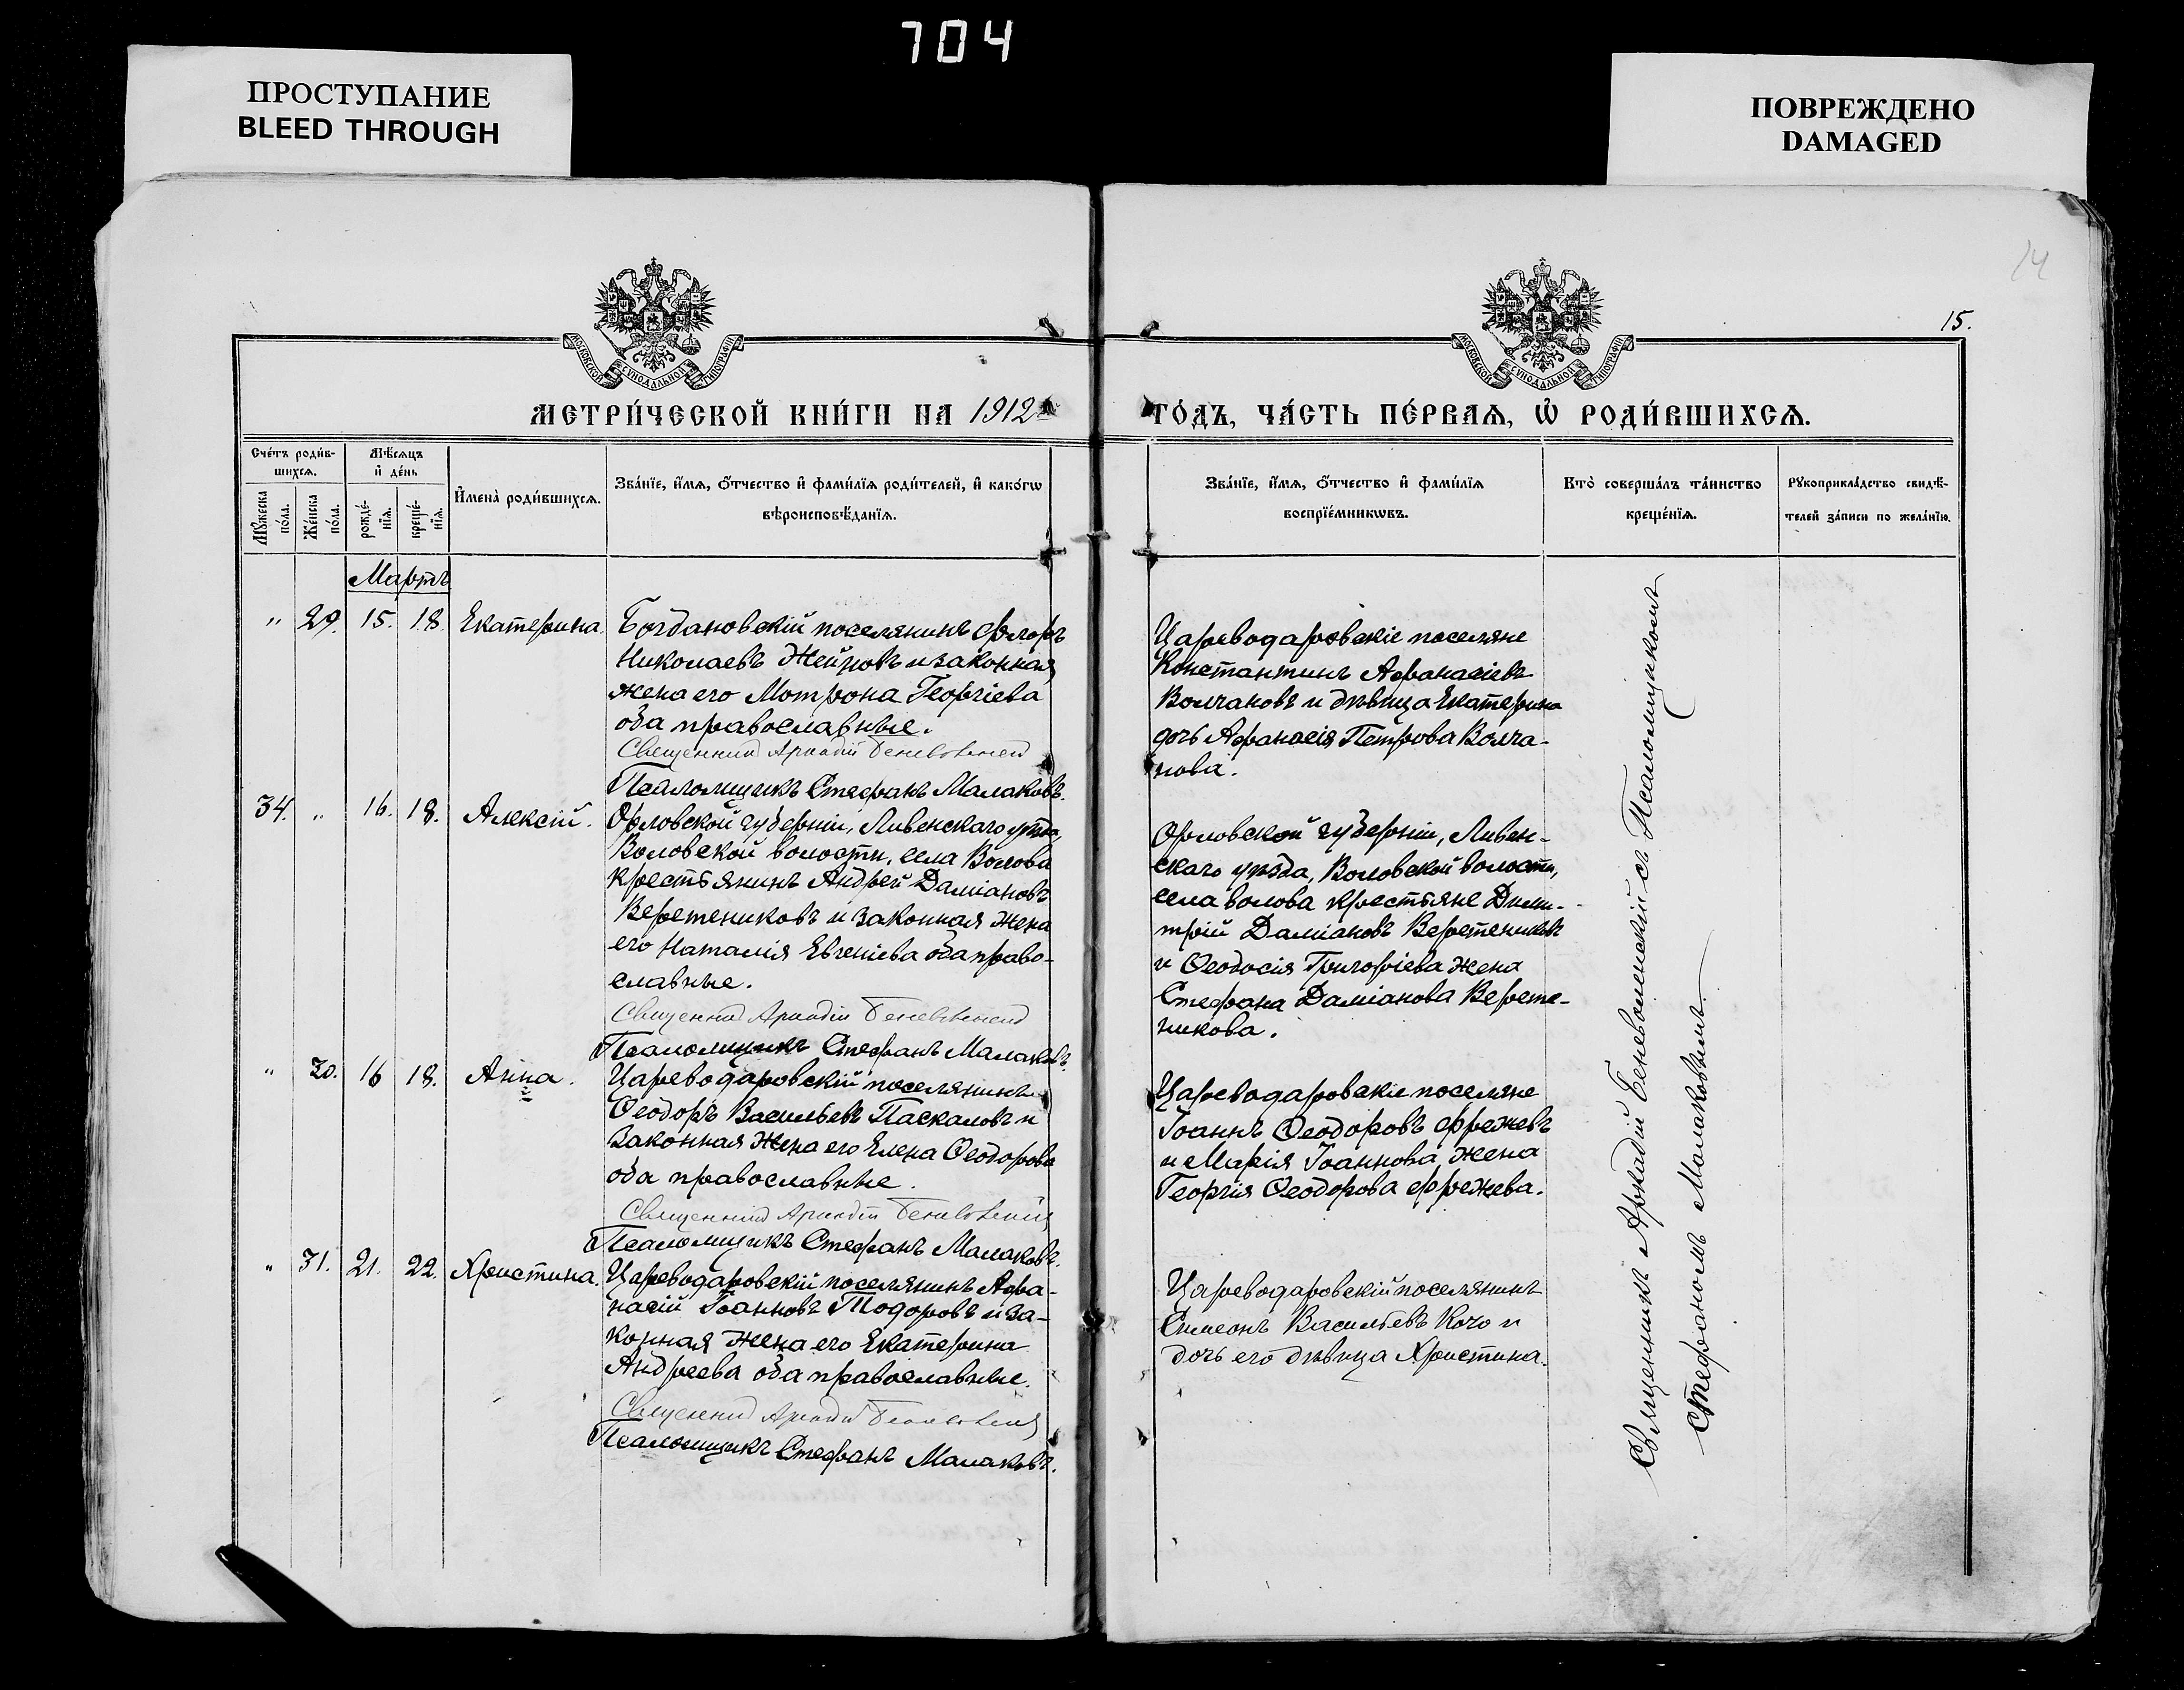 704
ПРОСТУПАНИЕ
BLEED THROUGH
ПОВРЕЖДЕНО
DAMAGED
14
15.
МОСКОВСКОЙ СѴНОДАЛЬНОЙ ТИПОГРАФІИ
МОСКОВСКОЙ СѴНОДАЛЬНОЙ ТИПОГРАФІИ
МЕТРИ́ЧЕСКОЙ КНИ́ГИ НА 1912
ГО́ДЪ, ЧА́СТЬ ПЕ́РВАѦ, Ѡ҆ РОДИ́ВШИХСѦ.
Сче́тъ роди́в-
шихсѧ.
Мꙋ́жеска
по́ла.
Же́нска
по́ла.
Мѣ́сѧцъ
и҆ де́нь
рожде́-
нїѧ.
креще́-
нїѧ.
И҆мена̀ роди́вшихсѧ.
Зва́нїе, и҆́мѧ, ѻ҆́тчество и҆ фами́лїѧ роди́телей, и҆ како́гѡ
вѣроисповѣ́данїѧ.
Зва́нїе, и҆́мѧ, ѻ҆́тчество и҆ фами́лїѧ
воспрїе́мникѡвъ.
Кто̀ соверша́лъ та́инство
креще́нїѧ.
Рꙋкоприкла́дство свидѣ́-
телей за́писи по жела́нїю.
Мартъ
" 29. 15. 18. Екатерина.
Богдановскій поселянинъ Флоръ
Николаевъ Жейновъ и законная
жена его Мотрона Георгіева
оба православные.
Священник Аркадій Беневоленский
Псаломщикъ Стефанъ Малаковъ.
Цареводаровскіе поселяне
Константинъ Афанасіевъ
Волчановъ и дѣвица Екатерина
дочь Афанасія Петрова Волча-
нова.
34. " 16. 18. Алексій.
Орловской губерніи, Ливенскаго уѣзда,
Воловской волости, села Волова
крестьянинъ Андрей Даміановъ
Веретениковъ и законная жена
его Наталія Евгеніева оба право-
славные.
Священник Аркадій Беневоленский
Псаломщикъ Стефанъ Малаковъ.
Орловской губерніи, Ливен-
скаго уѣзда, Воловской волости,
села Волова крестьяне Дими-
трій Даміановъ Веретениковъ
и Ѳеодосія Григоріева жена
Стефана Даміанова Верете-
никова.
" 30. 16 18. Анна.
Цареводаровскій поселянинъ
Ѳеодоръ Васильевъ Паскаловъ и
законная жена его Елена Ѳеодорова
оба православные.
Священник Аркадій Беневоленский
Псаломщикъ Стефанъ Малаковъ.
Цареводаровскіе поселяне
Іоаннъ Ѳеодоровъ Фрежевъ
и Марія Іоаннова жена
Георгія Ѳеодорова Фрежева.
" 31. 21. 22. Христина.
Цареводаровскій поселянинъ Афа-
насій Іоанновъ Тодоровъ и за-
конная жена его Екатерина
Андреева оба православные.
Священник Аркадій Беневоленский
Псаломщикъ Стефанъ Малаковъ.
Цареводаровскій поселянинъ
Симеонъ Васильевъ Кочо и
дочь его дѣвица Христина.
Священникъ Аркадій Беневоленскій съ Псаломщикомъ
Стефаномъ Малаковымъ.